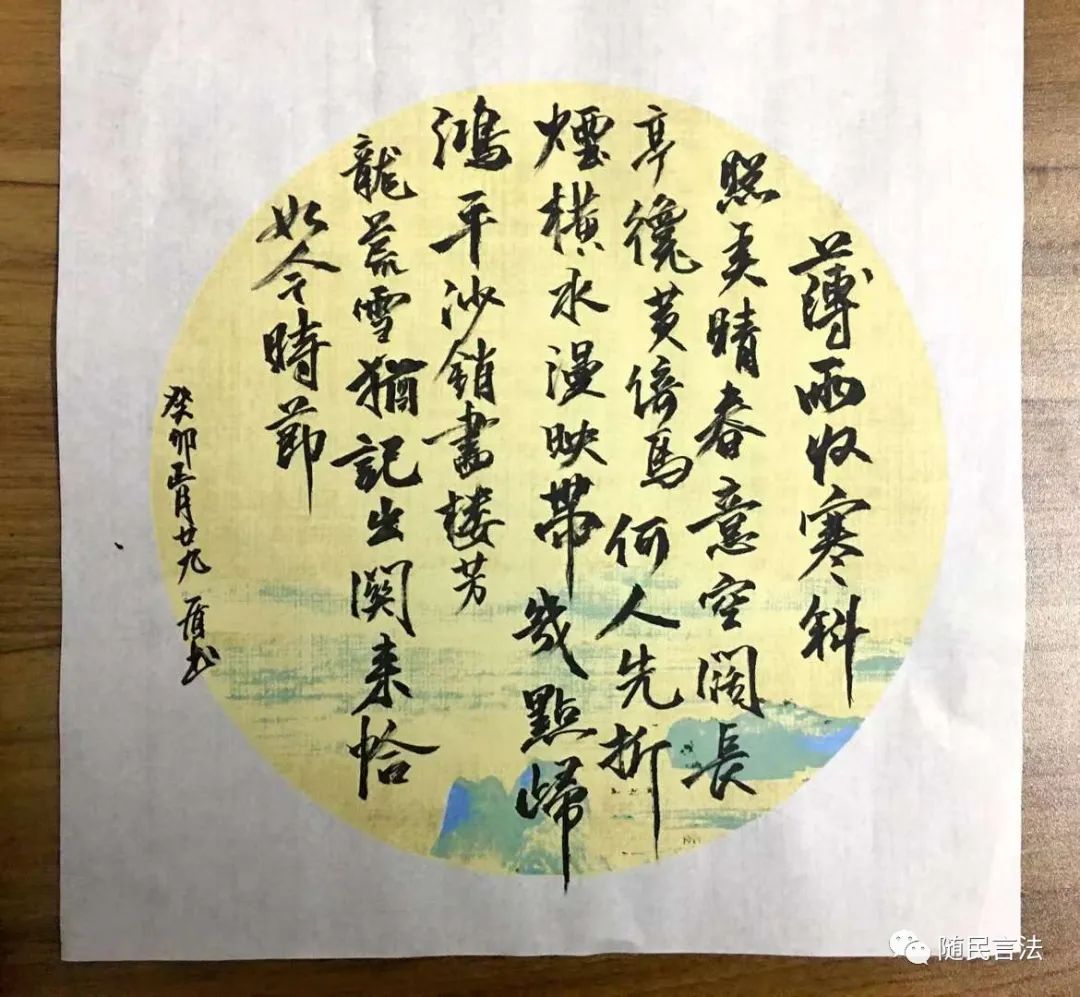 薄雨收寒斜
照弄晴春意空闊長
亭纔黄倚馬何人先折
煙横水漫映帶幾點歸
鴻平沙銷畫楼芳
龍荒雪猶記出関来恰
如今時節
癸卯正月廿九 书
随民言法